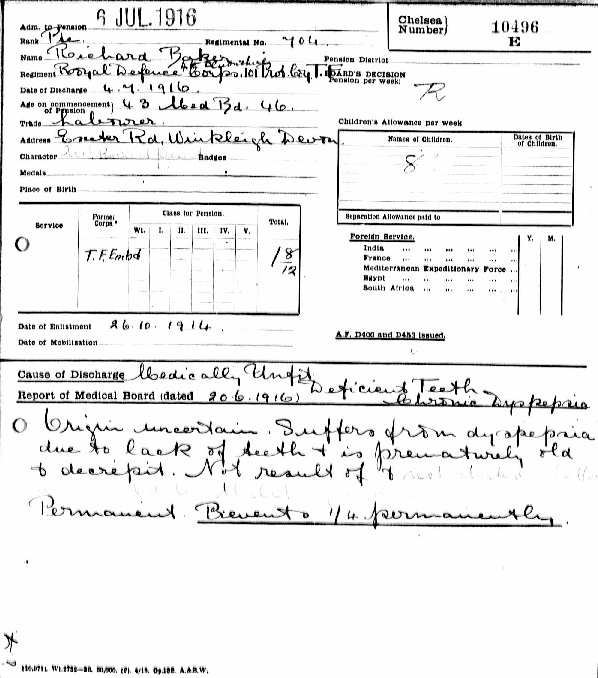 6 JUL. 1916
Adm. to Pension
Chelsea Number) 10496 E
Rank Pte Regimental No. 704
Name Richard Baker Pension District
Regiment Royal Defence Corps, 101 Prot. Coy T.F. BOARD'S DECISION
Date of Discharge 4.7.1916. Pension per week R
Age on commencement of Pension 43 Med Bd. 46.
Trade Labourer Children's Allowance per week
Address Exeter Rd, Winkleigh Devon
Names of Children. Dates of Birth of Children.
Character Badges 8
Medals
Place of Birth
Separation Allowance paid to
Service Former Corps Class for Pension. Total.
WI. I. II. III. IV. V.
Foreign Service. Y. M.
India ... ... ... ...
France ... ... ... ...
Mediterranean Expeditionary Force ...
Egypt ... ... ... ...
South Africa ... ... ... ...
T.F. Embd 1 8/12
Date of Enlistment 26.10.1914.
Date of Mobilisation
A.F. D400 and D453 issued.
Cause of Discharge Medically Unfit
Report of Medical Board (dated 20.6.1916) Deficient Teeth
Chronic Dyspepsia
Origin uncertain. Suffers from dyspepsia
due to lack of teeth & is prematurely old
& decrepit. Not result of
Permanent. Prevents 1/4 permanently.